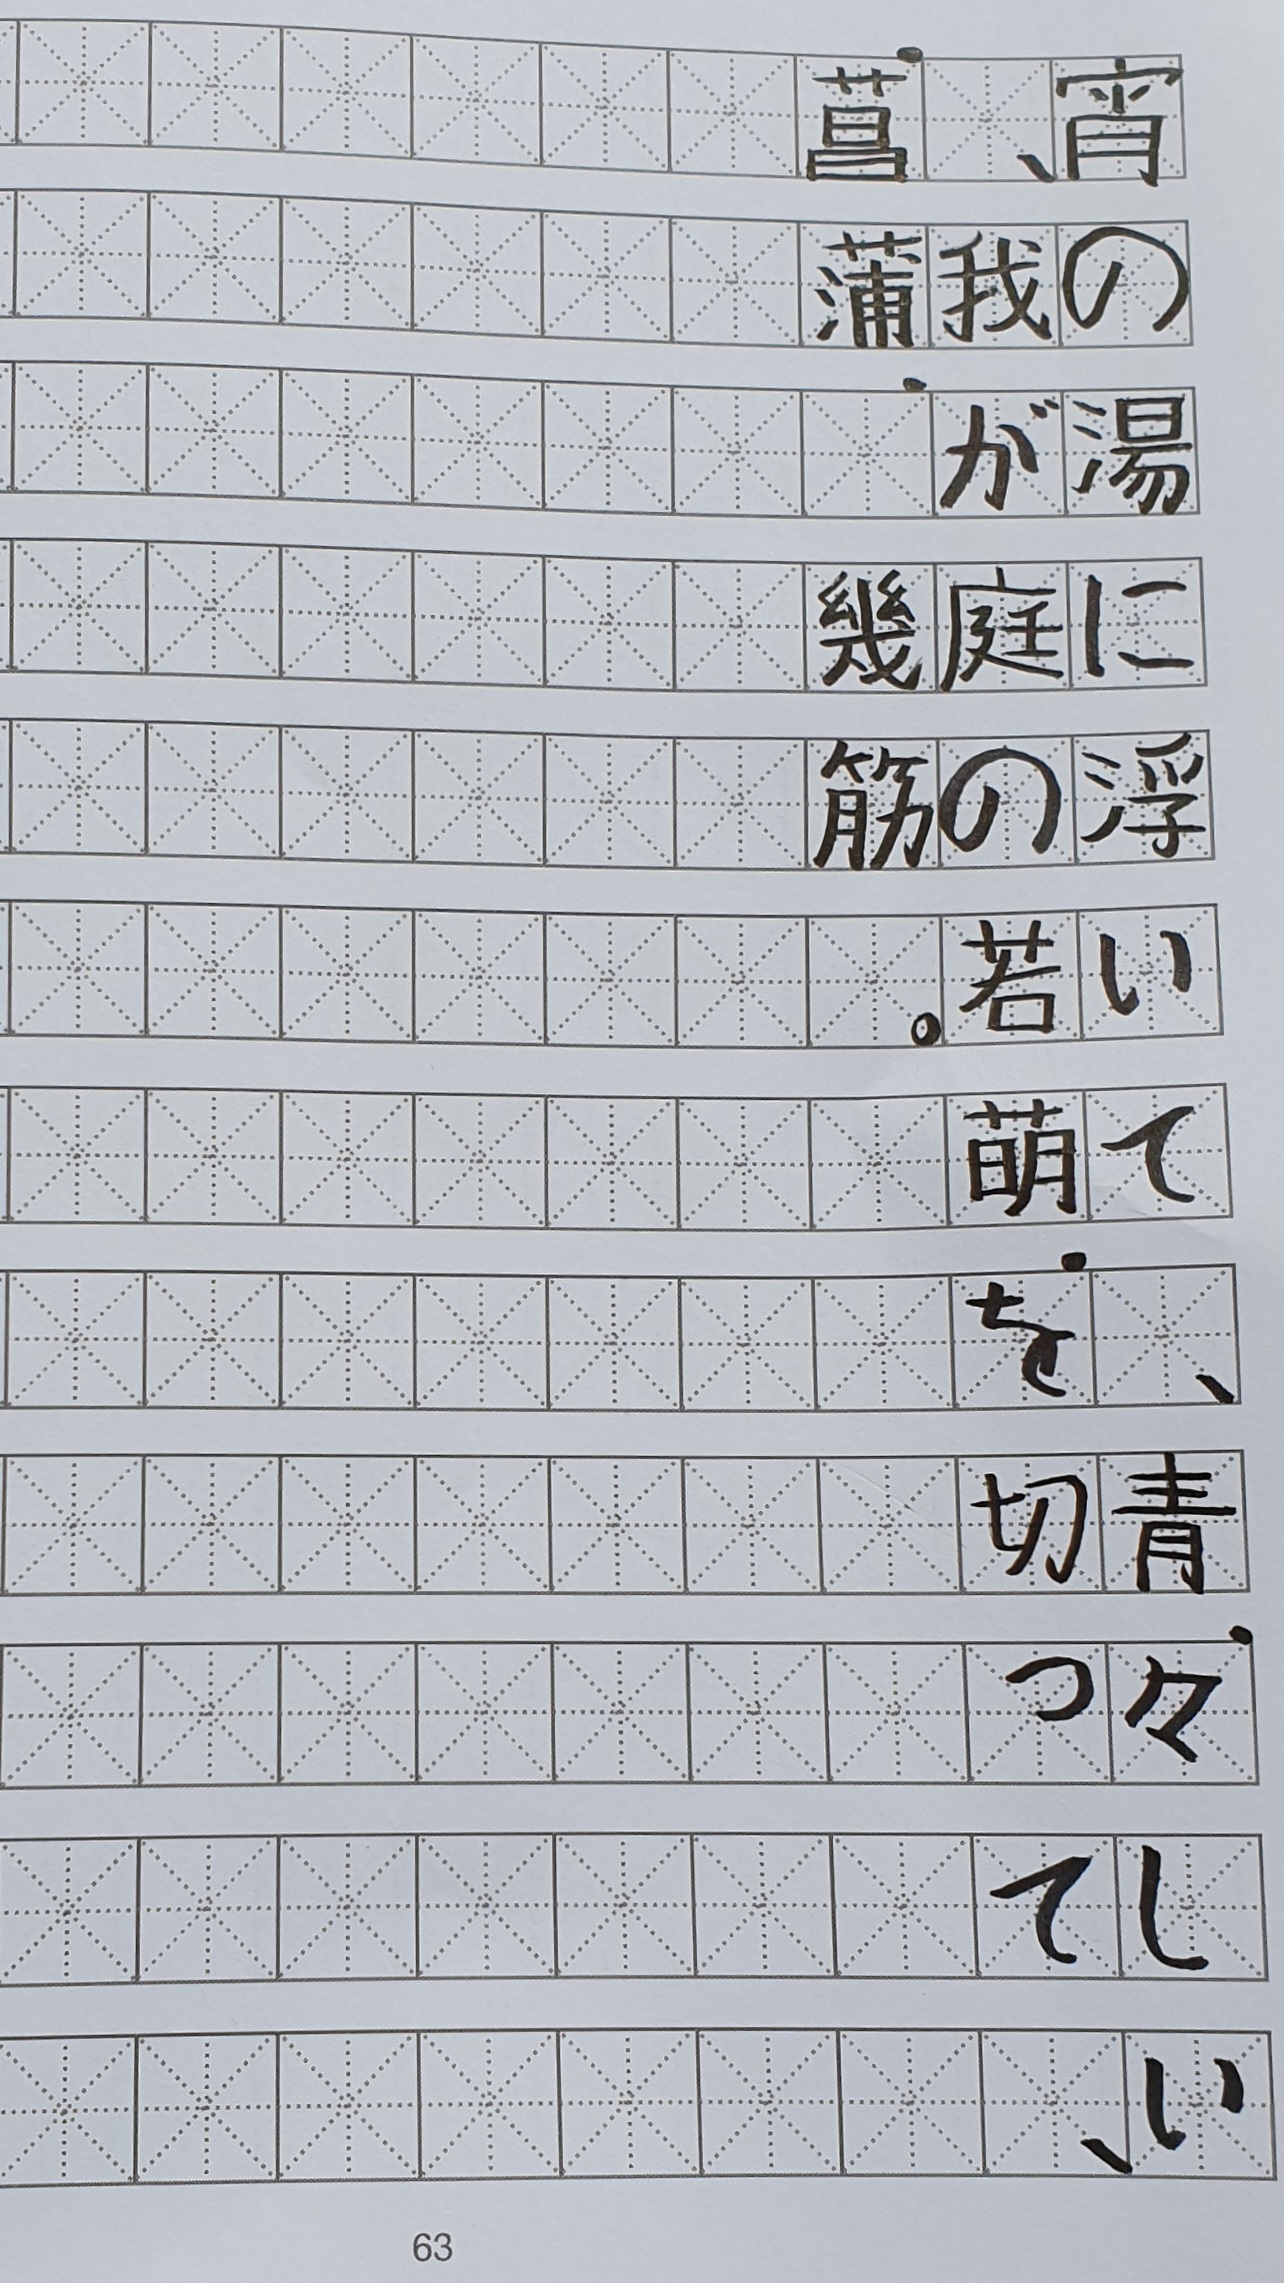 宵の湯に浮いて、青々しい
、我が庭の若萌を切って、
菖蒲 幾筋。
63